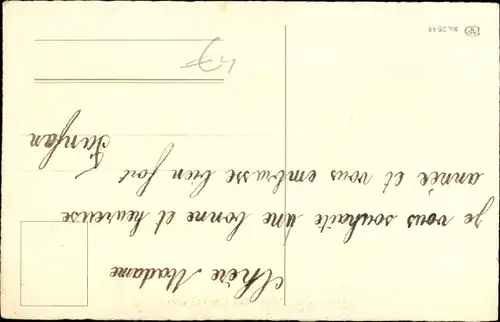 Chère Madame
Je vous souhaite une bonne et heureuse
année et vous embrasse bien fort
Fanfan